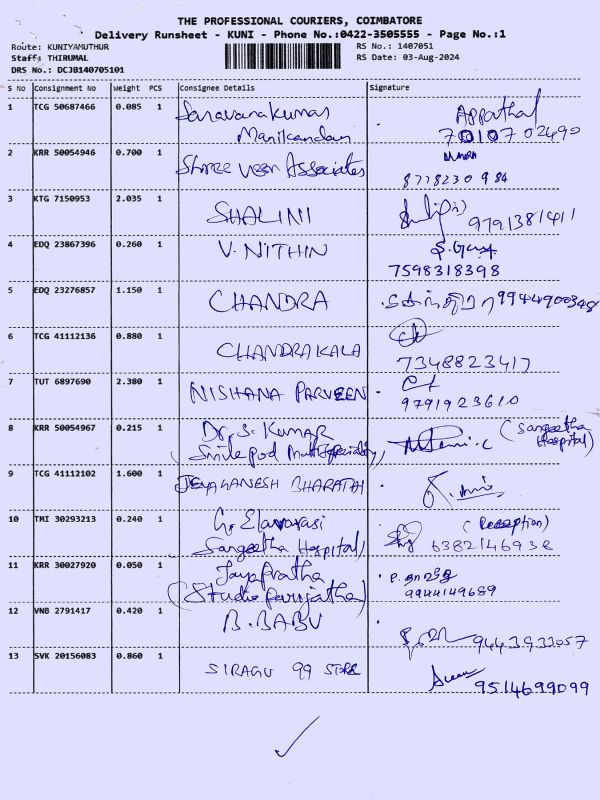 THE PROFESSIONAL COURIERS, COIMBATORE
Delivery Runsheet - KUNI - Phone No.:0422-3505555 - Page No.:1
Route: KUNIYAMUTHUR RS No.: 1407051
Staff: THIRUMAL RS Date: 03-Aug-2024
DRS No.: DCJB140705101
S No Consignment No Weight PCS Consignee Details Signature
1 TCG 50687466 0.085 1 Saravanakumar Appathal
Manikandan 7010702490
2 KRR 50054946 0.700 1 Shree veen Associates
8778230984
3 KTG 7150953 2.035 1 SHALINI 9791381411
4 EDQ 23867396 0.260 1 V. NITHIN
7598318398
5 EDQ 23276857 1.150 1 CHANDRA சந்திரா 9944900348
6 TCG 41112136 0.880 1 CHANDRAKALA
7348823417
7 TUT 6897690 2.380 1 NISHANA PARVEEN
9791923610
8 KRR 50054967 0.215 1 Dr. S. Kumar (Sangeetha
(Smilepod Multispeciality) Hospital)
9 TCG 41112102 1.600 1 JEYAGANESH BHARATHI
10 TMI 30293213 0.240 1 G. Elavarasi (Reception)
(Sangeetha Hospital) 6382146938
11 KRR 30027920 0.050 1 Jayapratha
(Studio parijatha) 9944149689
12 VNB 2791417 0.420 1 B. BABU
9443933057
13 SVK 20156083 0.860 1 SIRAGU 99 STORE
9514699099